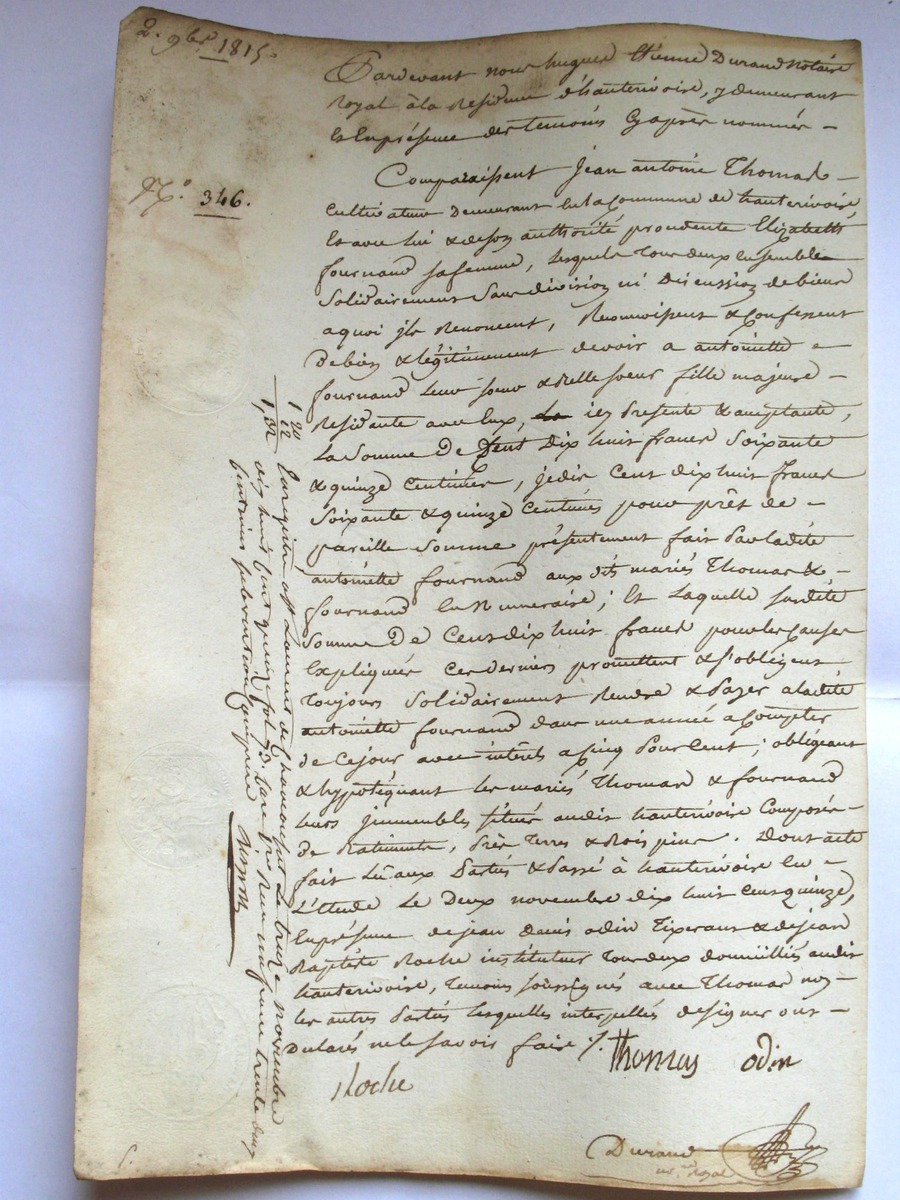 2. 9bre 1815.
No. 346.
Pardevant nous hugues Etienne Durand Notaire
Royal à la Residence d'hauterivoire, y demeurant
Et En présence des temoins Cy après nommés –
Comparaissent Jean antoine Thomas –
Cultivateur Demeurant En la Commune de hauterivoire,
Et avec lui & de son authorité procedente Elizabeth
fournand sa femme, lesquels tous deux ensemble
Solidairement Sans division ni Discussion de biens
a quoi ils Renoncent, Reconnoissent & Confessent
De bien & légitimement devoir a antoinette –
fournand Leur soeur & Belle soeur fille majeure –
Residante avec Eux, icy Presente & acceptante,
La Somme De Cent Dix huit francs Soixante
& quinze Centimes, je dis Cent dix huit francs
Soixante & quinze Centimes pour prêt de –
pareille Somme présentement fait Par ladite
antoinette fournand aux dits mariés Thomas & –
fournand En Numeraire; Et Laquelle susdite
Somme De Cent dix huit francs pour les Causes
Expliquées Ces Derniers promettent & s'obligent
Toujours Solidairement Rendre & Payer a ladite
antoinette fournand dans une année a Compter
de Ce jour avec intérêt a Cinq Pour Cent; obligeant
& hypotéquant les mariés Thomas & fournand
leurs jmmeubles situés audit hauterivoire Composés –
De Batiments, Prés Terres & Bois pins. Dont acte
fait Lu aux Parties & Passé à hauterivoire En –
L'Etude Le Deux novembre dix huit Cent quinze,
En présence de jean denis odin Tixerant & de jean
Baptiste Roche instituteur tous deux domiciliés audit
hauterivoire, Temoins soussignés avec Thomas non
les autres Parties lesquelles interpellées de signer ont –
Declarés ne le Savoir faire ./.
Thomas odin
Roche
Durand
no.re Royal
1 20
12
1, 32
Enregistré a St Laurent de Chamousset Le treize novembre
dix huit Cent quinze fol. Reçu un franc trente deux
Centimes subvention Comprise